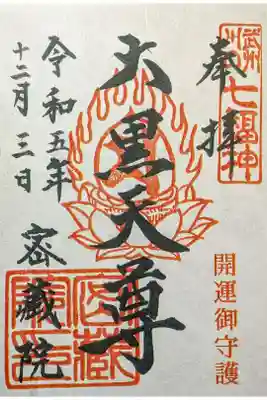 奉拝
七福神
開運御守護
大黒天尊
令和五年
十二月三日
密蔵院